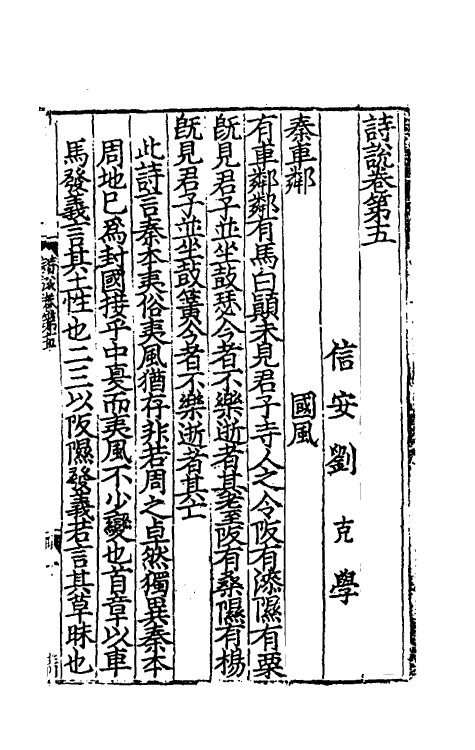 詩說卷第五
信安劉克學
秦車鄰　國風
有車鄰鄰有馬白顚未見君子寺人之令阪有漆隰有栗
旣見君子並坐鼓瑟今者不樂逝者其耋阪有桑隰有楊
旣見君子並坐鼓簧今者不樂逝者其亡
此詩言秦本夷俗夷風猶存非若周之卓然獨異秦本
周地已爲封國接乎中夏而夷風不少變也首章以車
馬發義言其土性也二三以阪隰發義若言其草昧也
詩說卷第五